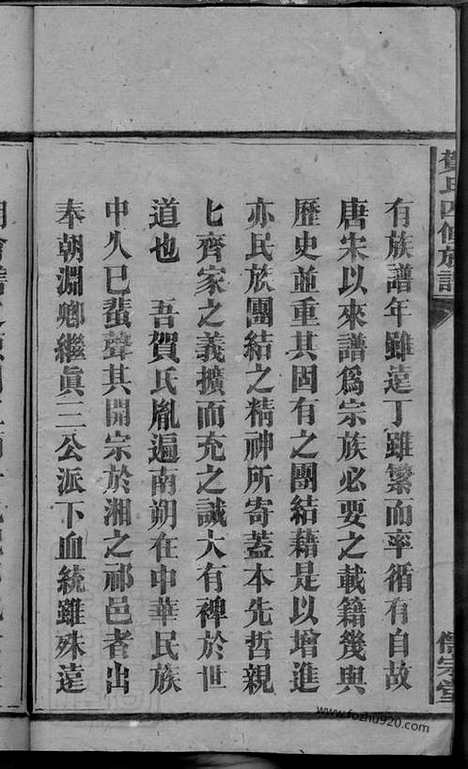 賀氏四修族譜
有族譜年雖遠丁雖繁而率循有自故
唐宋以來譜爲宗族必要之載籍幾與
歷史並重其固有之團結藉是以增進
亦民族團結之精神所寄蓋本先哲親
七齊家之義擴而充之誠大有裨於世
道也　吾賀氏胤遍南朔在中華民族
中久已蜚聲其開宗於湘之祁邑者出
奉朝淵鄉繼眞三公派下血統雖殊遠
www.fozhu920.com